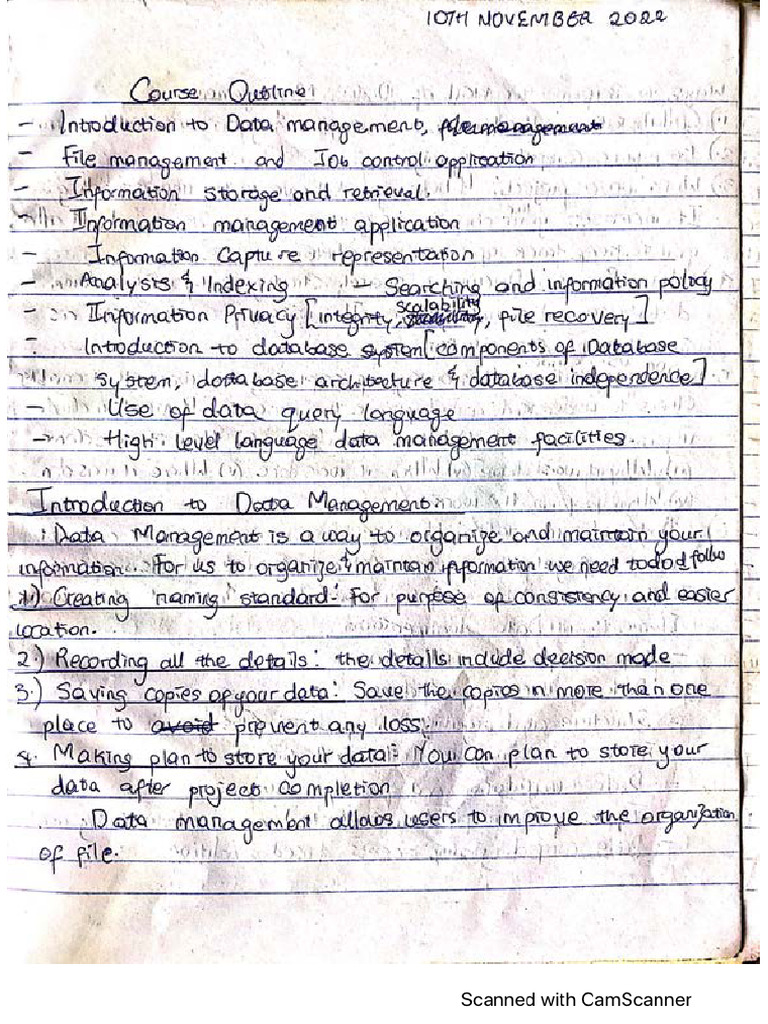 10TH NOVEMBER 2022
Course Outline
- Introduction to Data management, file management
- File management and Job control application
- Information storage and retrieval.
- Information management application
- Information Capture representation
- Analysis & Indexing - Searching and information policy
- Information Privacy [integrity, scalability, file recovery]
- Introduction to database system [components of Database
system, database architecture & database independence]
- Use of data query language
- High level language data management facilities.
Introduction to Data Management
Data Management is a way to organize and maintain your
information. For us to organize & maintain information we need to do d follow
1) Creating naming standard: For purpose of consistency and easier
location.
2.) Recording all the details: the details include decision made
3.) Saving copies of your data: Save the copies n more than one
place to avoid prevent any loss.
4. Making plan to store your data: You can plan to store your
data after project completion
Data management allows users to improve the organization
of file.
Scanned with CamScanner